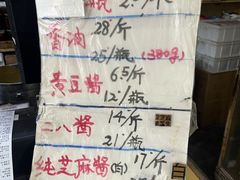 瓶
香油 28/斤
25/瓶 (380g)
黄豆酱 6.5/斤
12/瓶
二八酱 14/斤
21/瓶
纯芝麻酱(白) 17/斤